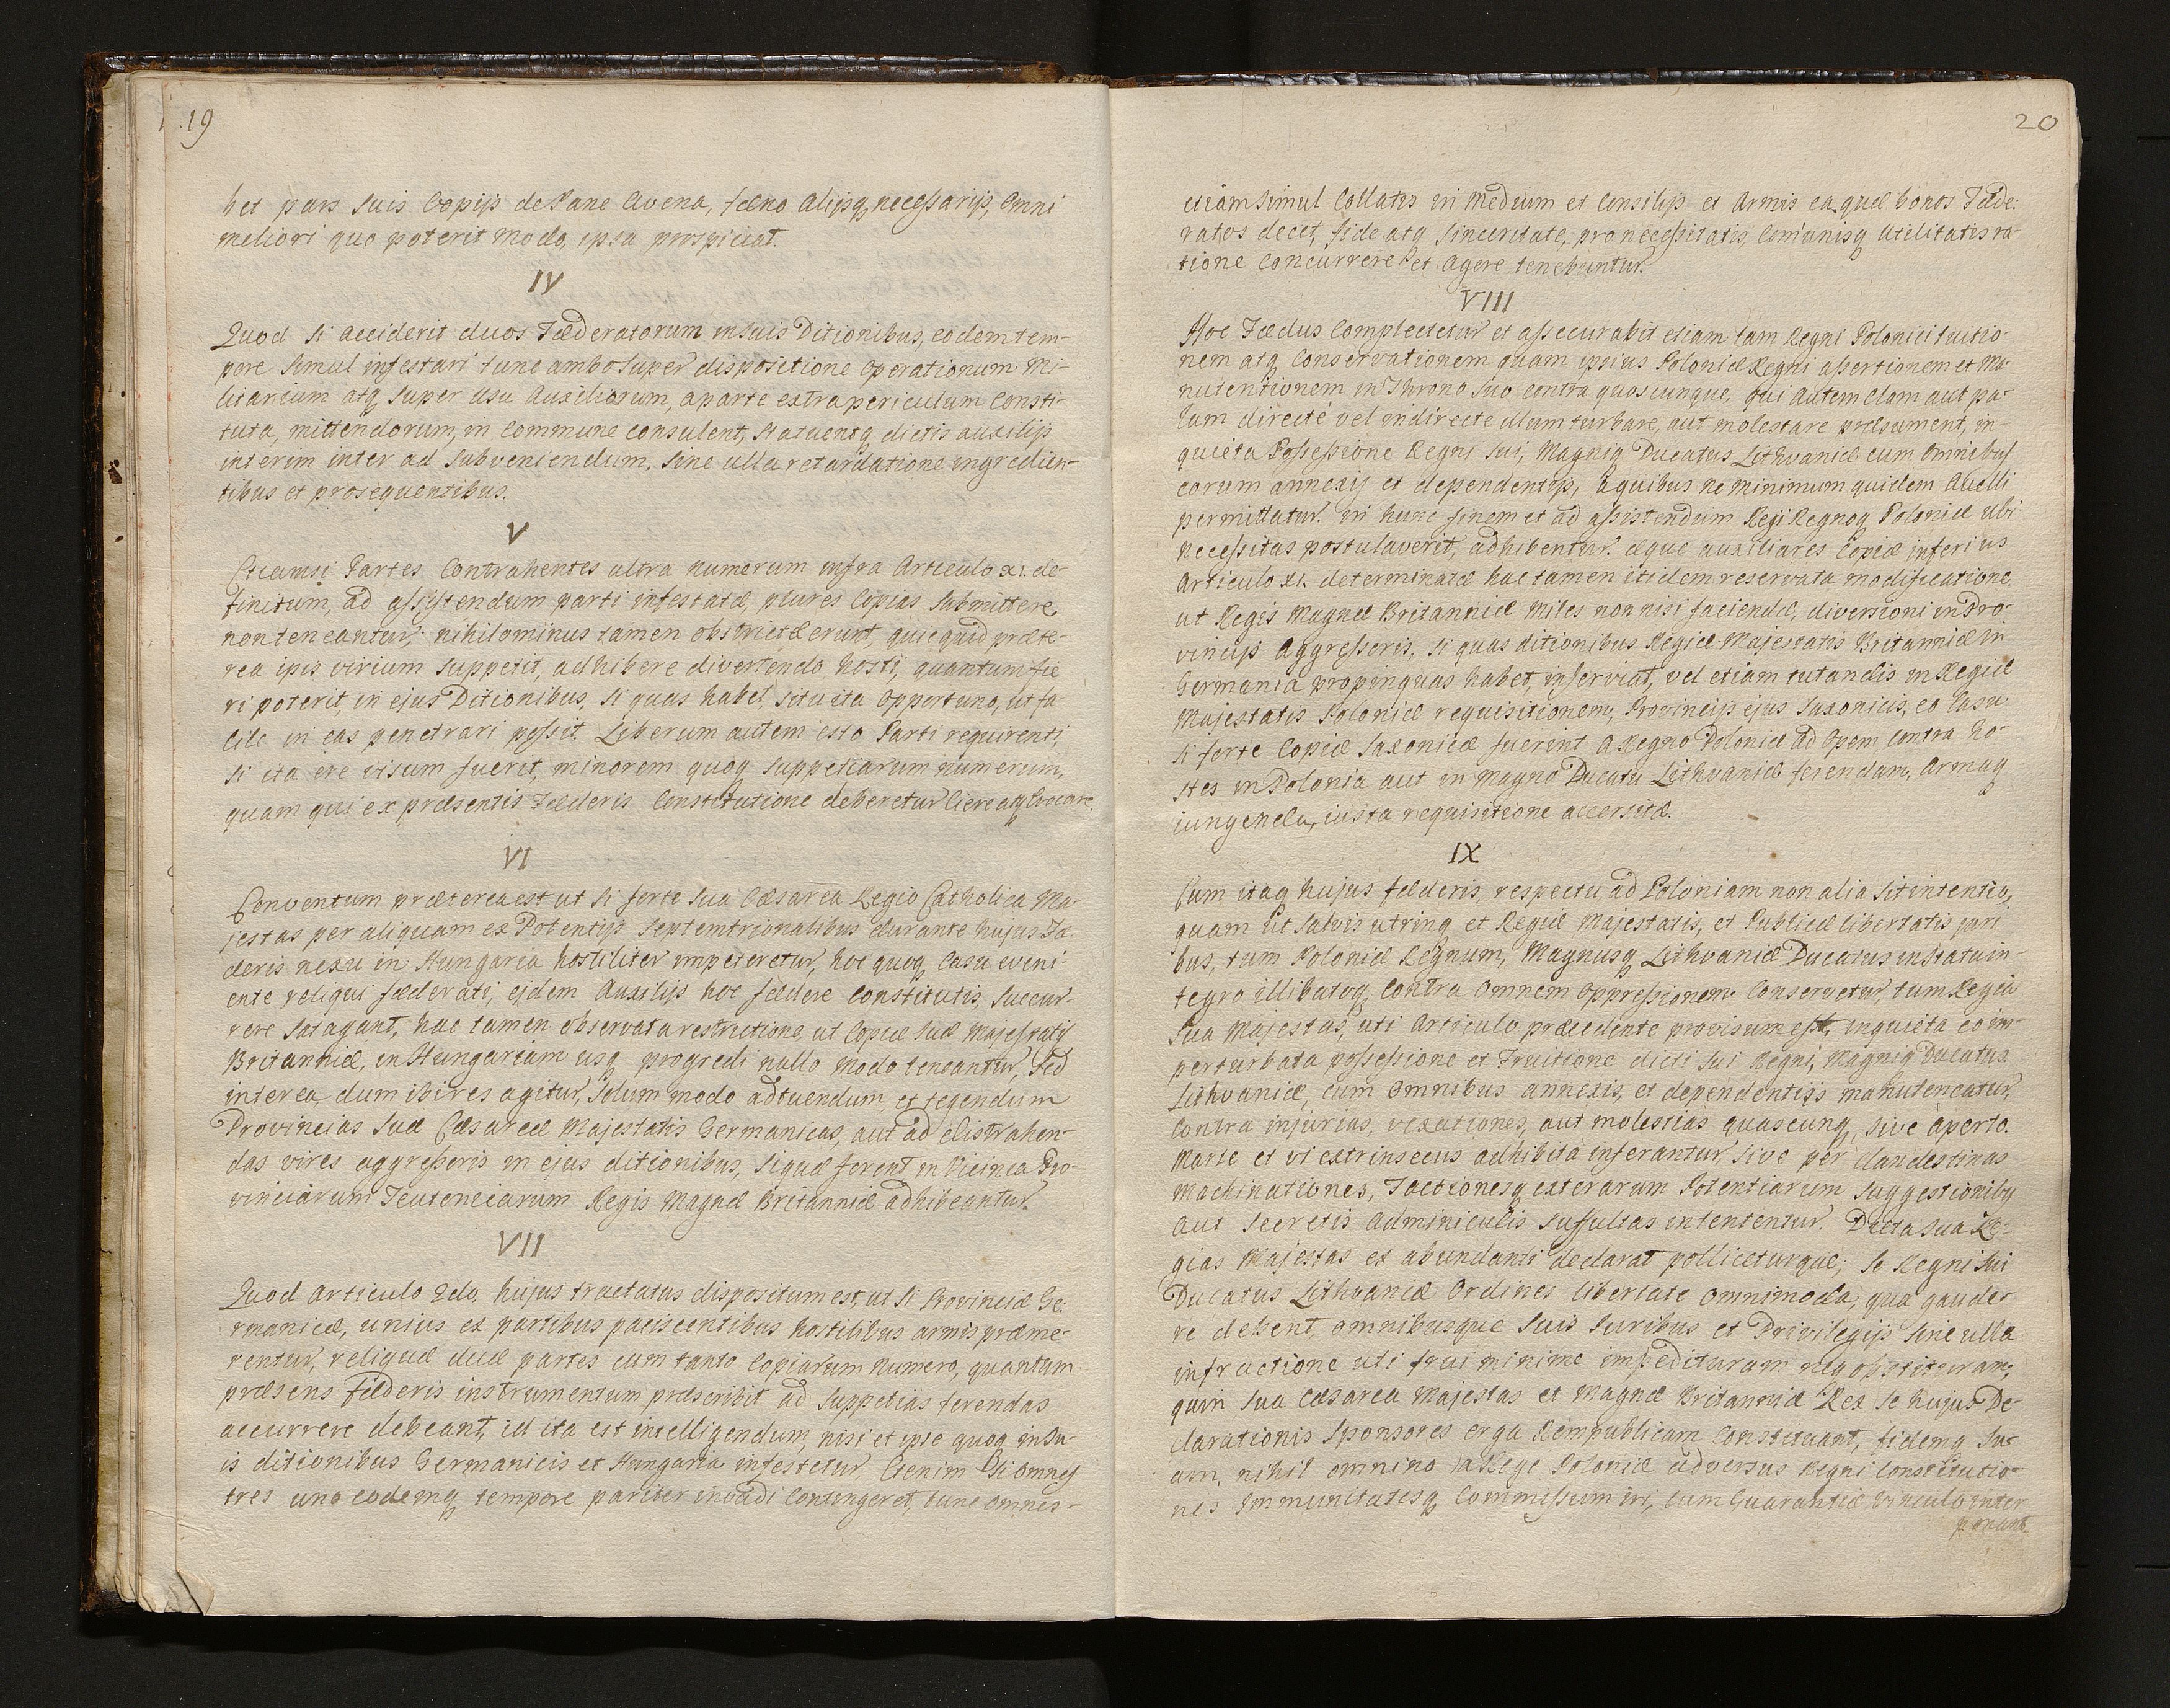 19
bet pars suis Copijs de Pane Avena, fæno Alijsq necessarijs, Omni
meliori quo poterit Modo, ipsa prospiciat.
IV
Quod si acciderit duos Fæderatorum in suis Ditionibus, eodem tem-
pore simul infestari tunc ambo super dispositione Operationum Mi-
litarium atq super usu Auxiliorum, a parte extra periculum Consti-
tuta, mittendorum, in Commune Consulent, statuentq dictis auxilijs
interim inter ad subveniendum, sine ulla retardatione ingredien-
tibus et prosequentibus.
V
Etiamsi Partes Contrahentes ultra numerum infra Articulo XI. de-
finitum, ad assistendum parti infestatæ, plures Copias Submittere
non teneantur; nihilominus tamen obstrictæ erunt, quicquid præte-
rea ipis virium suppetit, adhibere divertendo hosti, quantum fie
ri poterit, in ejus Ditionibus, si quas habet, situ ita Opportuno, ut fa
cile in eas penetrari possit. Liberum autem esto Parti requirenti,
si ita ere visum fuerit, minorem quoq suppetiarum numerum,
quam qui ex præsentis Fæderis Constitutione deberetur Ciere atq Evocare.
VI
Conventum præterea est ut si forte Sua Cæsarea Regio Catholica Ma-
jestas per aliquam ex Potentijs Septemtrionalibus durante hujus Fæ
deris nexu in Hungaria hostiliter impeteretur, hoc quoq Casu eveni
ente reliqui fæderati, ejdem Auxilijs hoc fædere Constitutis, Succur-
rere satagant, hac tamen observata restrictione, ut Copiæ Suæ Majestatis
Britanniæ, in Hungariam usq progredi nullo modo teneantur, Sed
interea dum ibi res agitur, Solum modo ad tuendum et tegendum
Provincias Suæ Cæsareæ Majestatis Germanicas, aut ad distrahen-
das vires aggressoris in ejus ditionibus, si quæ forent in Vicinea Pro-
vinciarum Teutonicarum Regis Magnæ Britanniæ adhibeantur.
VII
Quod Articulo 2do hujus tractatus dispositum est, ut si Provinciæ Ge:
rmanicæ, unius ex partibus paciscentibus hostilibus armis præme-
rentur, reliquæ duæ partes cum tanto Copiarum Numero, quantum
præsens Fæderis instrumentum præscribit ad Suppetias ferendas
accurrere debeant, id ita est intelligendum, nisi et ipse quoq in Su-
is ditionibus Germanicis et Hungaria infestetur, Etenim Si Omnes
tres uno eodemq tempore pariter invadi Contingeret, tunc Omnes-
20
etiam Simul Collatis in Medium et Consilijs et Armis ea, quæ bonos Fæde:
ratos decet, fide atq Sinceritate, pro necessitatis, Com̃unisq Utilitatis ra-
tione Concurrere et Agere tenebuntur.
VIII
Hoc Fædus Complectetur et assecurabit etiam tam Regni Polonici tuitio-
nem atq Conservationem quam ipsius Poloniæ Regni assertionem et Ma-
nutentionem in Throno suo contra quoscunque. qui autem Clam aut pa-
lam directé vel indirecte ullum turbare, aut molestare præsument, in-
quieta Possessione Regni sui, Magniq Ducatus Lithvaniæ cum Omnibus
eorum annexis et dependentijs, Equibus ne minimum quidem Avelli
permittatur. In hunc finem et ad assistendum Regi Regnoq Poloniæ ubi
Necessitas postulaverit, adhibentur æque auxiliares Copiæ inferius
Articulo XI. determinatæ hac tamen itidem reservata modificatione.
ut Regis Magnæ Britanniæ Miles non nisi faciendæ, diversioni in Pro-
vincijs Aggressoris, si quas ditionibus Regiæ Majestatis Britanniæ in
Germania propinquas habet, inserviat, vel etiam tutandis in Regiæ
Majestatis Poloniæ requisitionem, Provincijs ejus Saxonicis, eo Casu
si forte Copiæ Saxonicæ fuerint a Regno Poloniæ ad Opem, Contra ho-
stes in Polonia aut in Magno Ducatu Lithvaniæ ferendam, Armaq
iungenda, iusta requisitione accersitæ.
IX
Cum itaq hujus fæderis, respectu ad Poloniam non alia sit intentio,
quam ut Salvis utrinq et Regiæ Majestatis, et Publicæ libertatis juri
bus, tum Poloniæ Regnum, Magnusq Lithvaniæ Ducatus in Statu in-
tegro illibatoq, Contra Omnem Oppressionem Conservetur, tum Regia
Sua Majestas, uti Articulo præcedente provisum est, in quieta eo im-
perturbata possessione et Fruitione dicti Sui Regni, Magniq Ducatus
Lithvaniæ, cum Omnibus annexis, et dependentijs manuteneatur,
Contra injurias, vexationes, aut molestias quascunq, sive aperto
Marte et vi extrinsecus adhibita inferantur, sive per clandestinas
Machinationes, Factionesq exterarum Potentiarum Suggestioniby
aut Secretis Adminiculis suffultas intententur. Dicta sua Re-
gias Majestas ex abundanti declarat polliceturque, se Regni sui
Ducatus Lithvaniæ Ordines libertate Omnimoda, qua gaude-
re debent, omnibusque Suis Juribus et Privilegijs Sine ulla
infractione uti frui minime impedituram neq obstituram,
quin Sua Cæsarea Majestas et Magnæ Britanniæ Rex se hujus De-
clarationis Sponsores erga Rempublicam Constituant, fidemq Su-
am, nihil omnino a Rege Poloniæ adversus Regni Constitutio-
nes Immunitatesq Commissum iri, Cum Guarantiæ Vinculo inter
ponant